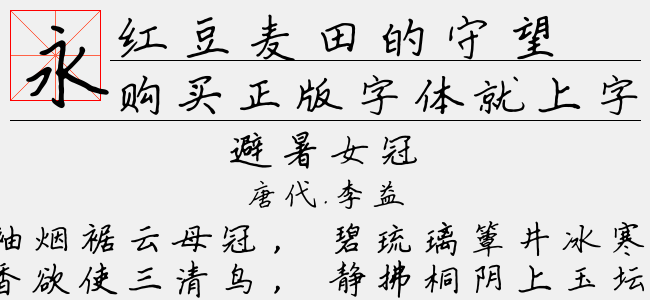 永
红豆麦田的守望
购买正版字体就上字
避暑女冠
唐代.李益
袖烟裾云母冠，碧琉璃簟井冰寒
香欲使三清鸟，静拂桐阴上玉坛